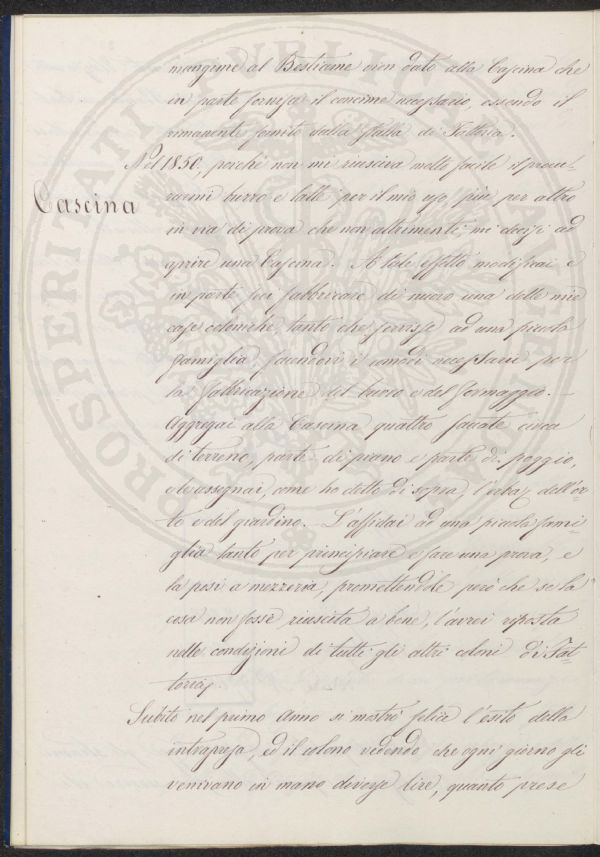 mangime al Bestiame vien dato alla Cascina che
in parte fornisce il concime necessario, essendo il
rimanente fornito dalla stalla di Fattoria.
Nel 1850, perchè non mi riusciva molto facile il procu-
rarmi burro e latte per il mio uso, più per altro
in via di prova che non altrimenti, mi decisi ad
aprire una Cascina. A tale effetto modificai e
in parte feci fabbricare di nuovo una delle mie
case coloniche, tanto che servisse ad una piccola
famiglia, facendovi i comodi necessari per
la fabbricazione del burro e del formaggio. —
Aggregai alla Cascina quattro saccate circa
di terreno, parte di piano e parte di poggio,
e le assegnai, come ho detto di sopra, l'erba dell'or-
to e del giardino. — L'affidai ad una piccola fami-
glia tanto per principiare e fare una prova, e
la posi a mezzeria, promettendole però che se la
cosa non fosse riuscita a bene, l'avrei riposta
nelle condizioni di tutti gli altri coloni di Fat-
toria.
Cascina
Subito nel primo anno si mostrò felice l'esito della
intrapresa, ed il colono vedendo che ogni giorno gli
venivano in mano diverse lire, quanto prese
PROSPERITATI PUBLICAE AUGENDAE